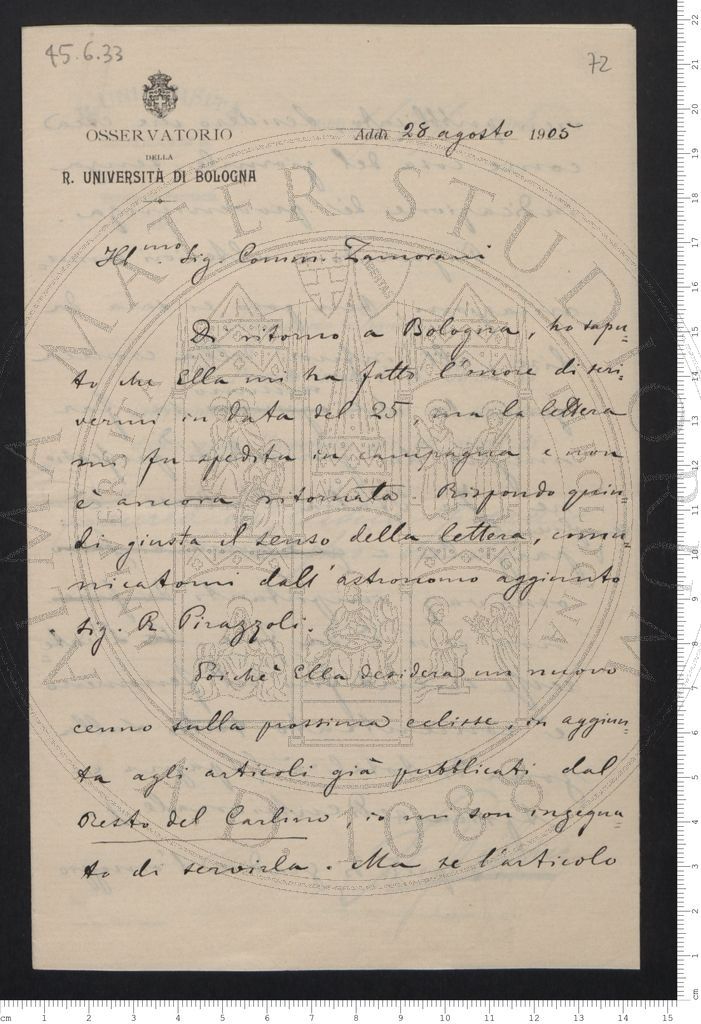 45.6.33
72
OSSERVATORIO
DELLA
R. UNIVERSITÀ DI BOLOGNA
Addì 28 agosto 1905
Ill.mo Sig. Comm. Zamorani
Di ritorno a Bologna, ho sapu=
to che Ella mi ha fatto l'onore di scri=
vermi in data del 25, ma la lettera
mi fu spedita in campagna e non
è ancora ritornata. Rispondo quin=
di giusta il senso della lettera, comu=
nicatomi dall'astronomo aggiunto
sig. R. Pirazzoli.
Poichè Ella desidera un nuovo
cenno sulla prossima eclisse, in aggiun=
ta agli articoli già pubblicati dal
Resto del Carlino, io mi son ingegna=
to di servirla. Ma se l'articolo
ALMA MATER STUDIORUM
A.D. 1088